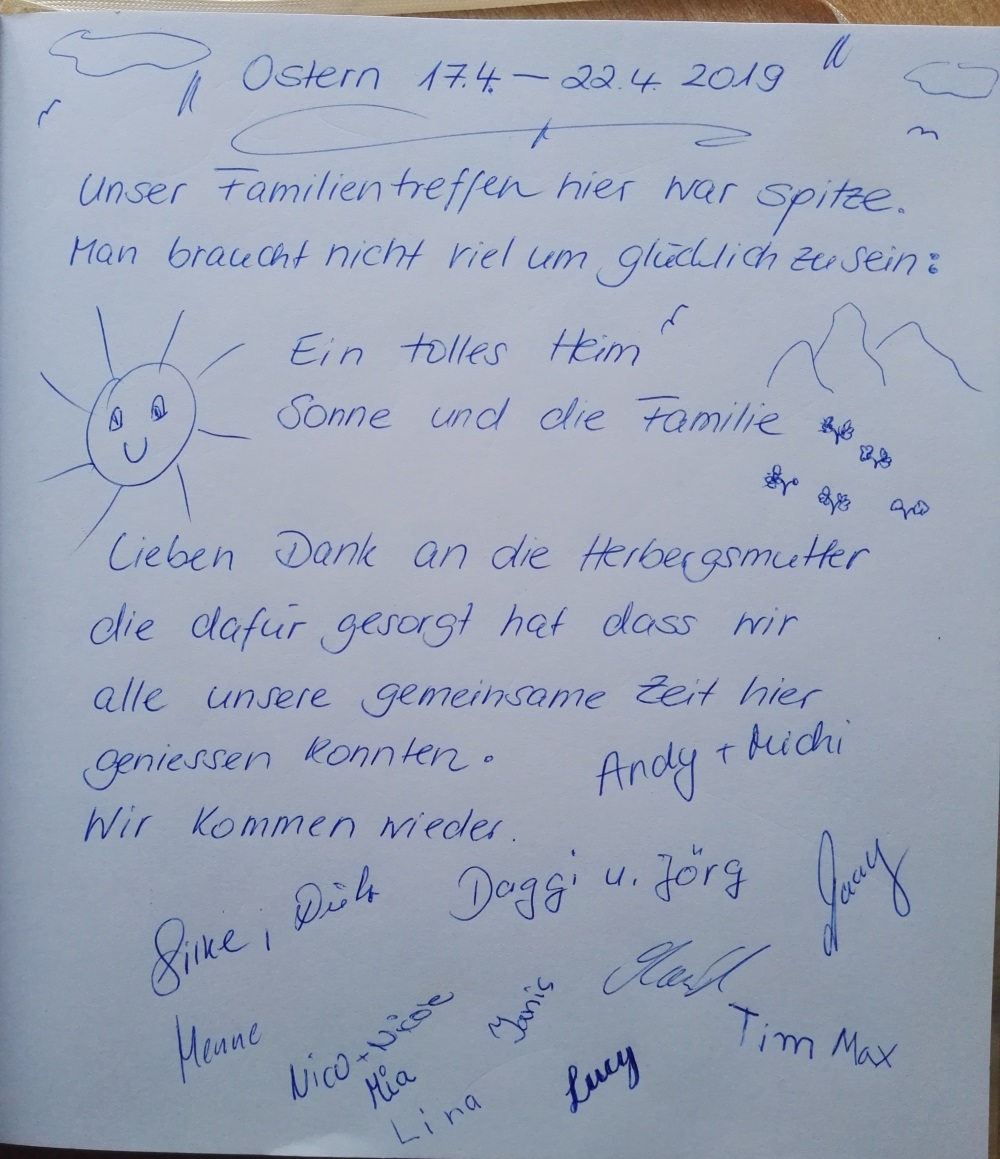 Ostern 17.4. — 22.4. 2019
Unser Familientreffen hier war spitze.
Man braucht nicht viel um glücklich zu sein:
Ein tolles Heim
Sonne und die Familie
Lieben Dank an die Herbergsmutter
die dafür gesorgt hat dass wir
alle unsere gemeinsame Zeit hier
geniessen konnten.
Andy + Michi
Wir kommen wieder.
Silke,
Daggi u. Jörg
Menne
Nico + Nicole
Mia
Janis
Lina
Lucy
Tim Max